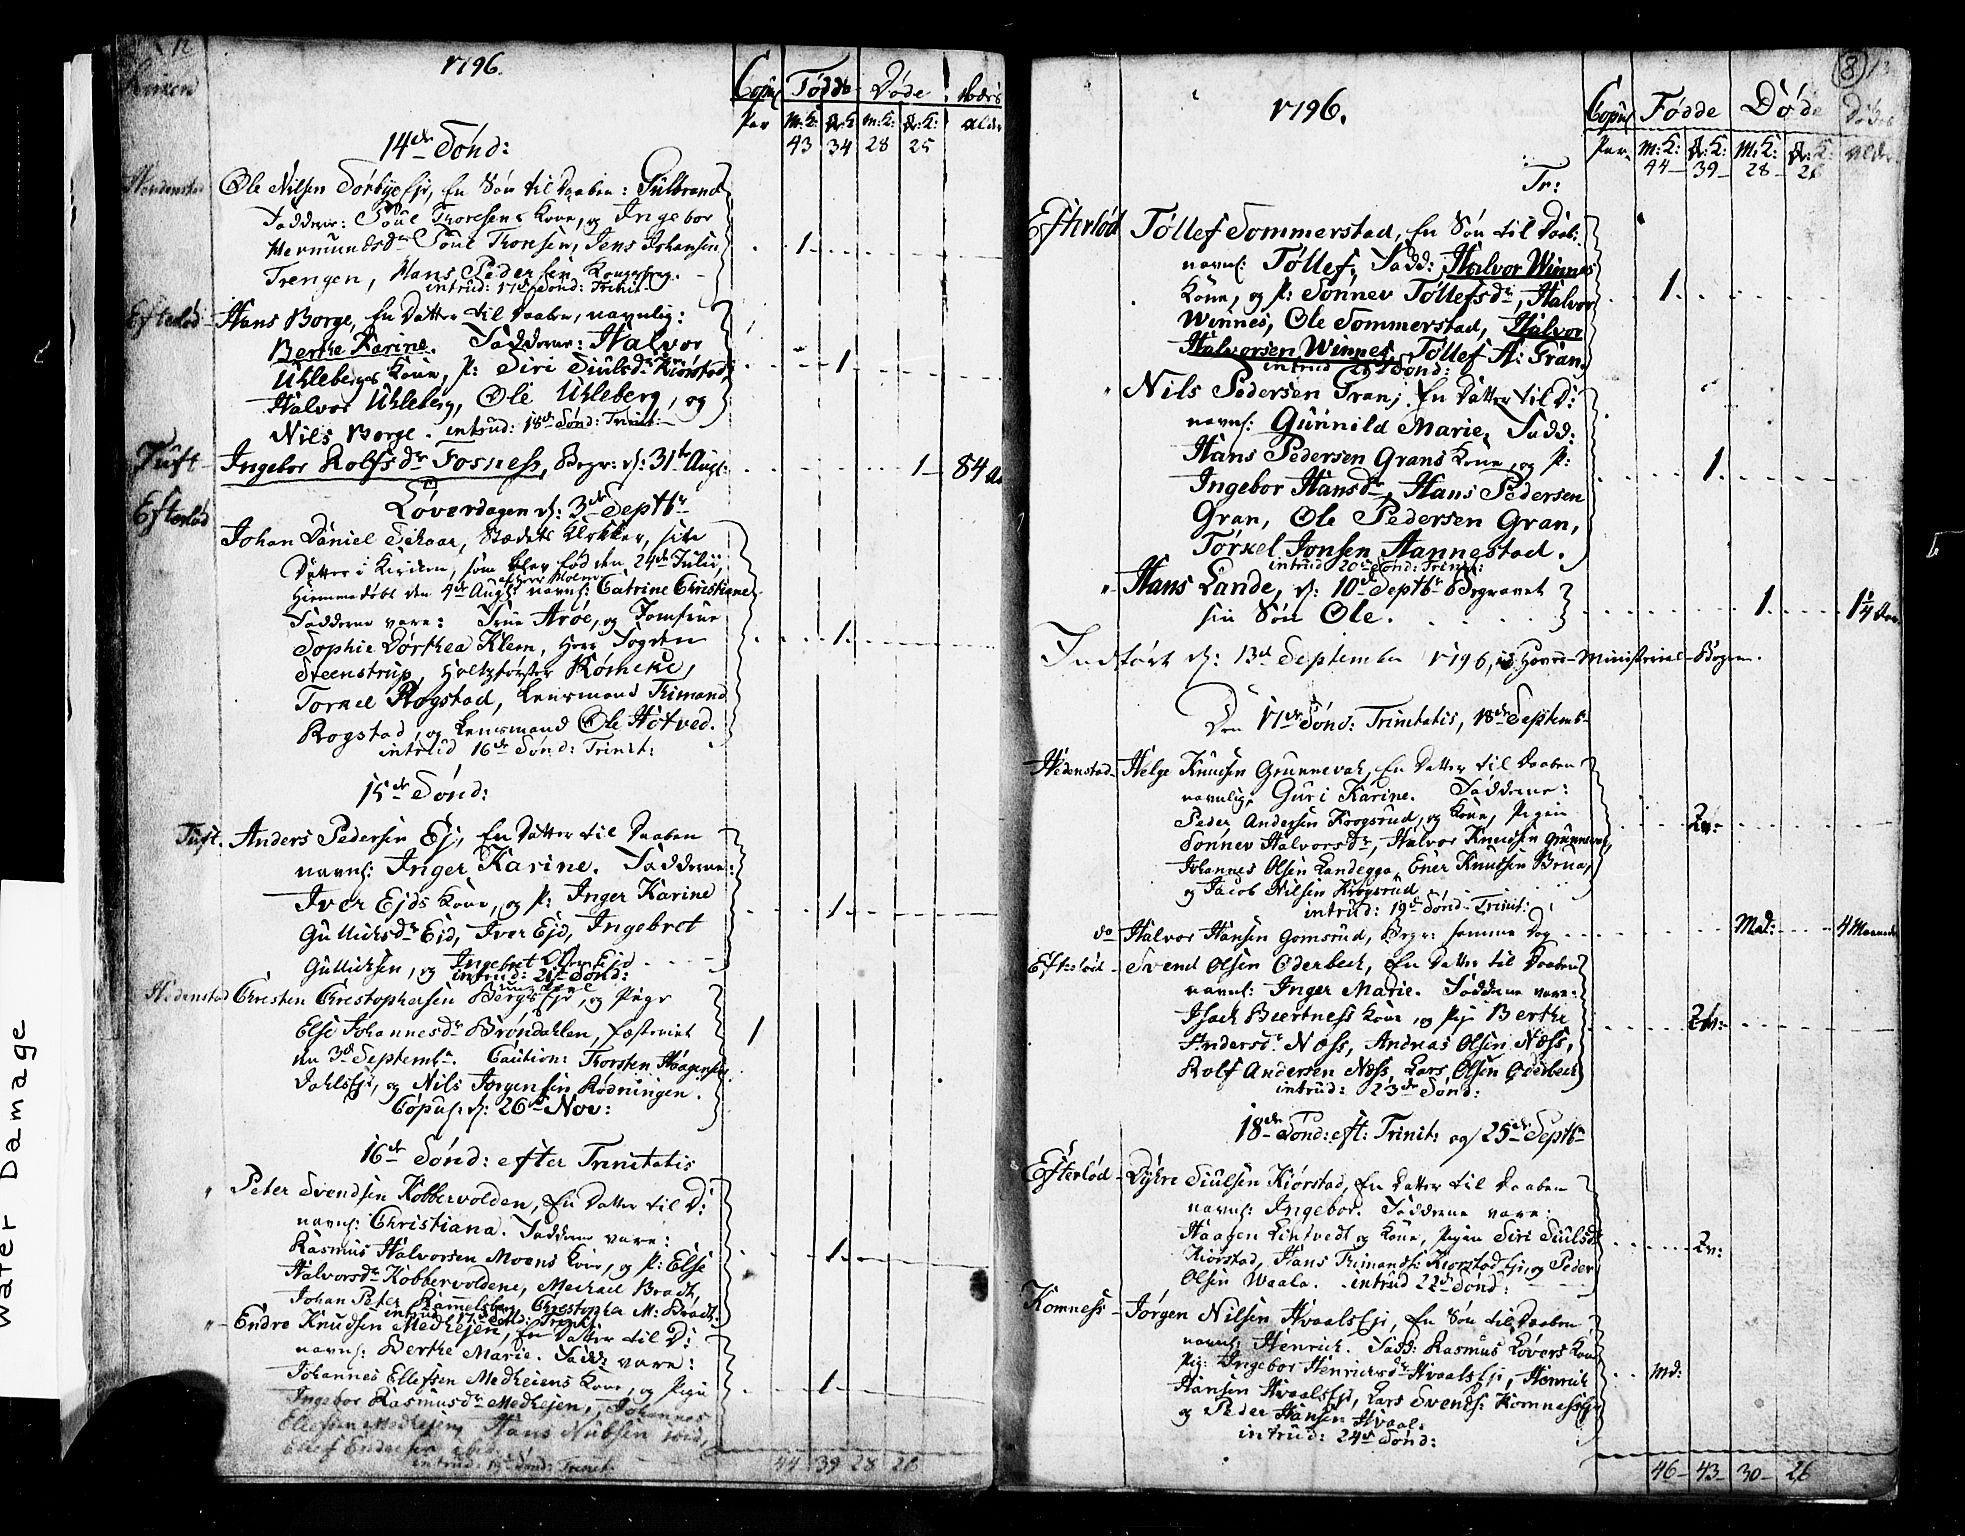 12
Kirken
1796.
Copul Fødde Døde deres
Par M:K: Q:K: M:K: Q:K: alder
43 34 28 25
14de Sønd:
Hedenstad Ole Nilsen Sørbyeje, En Søn til Daaben: Gulbrand
Fadderne: Poul Thoresens Kone, og Ingebor
Hermundsdr Poul Thorsen, Jens Johansen
1
Trengen, Hans Pedersen Kongsberg.
intrud: 17de Sønd: Trinit
Eftelød Hans Borge, En Datter til Daaben, navnlig:
Berthe Karine. Fadderne: Halvor
Uhlebergs Kone, P: Siri Siulsdr Kiørstad, 1
Halvor Uhleberg, Ole Uhleberg, og
Nils Borge. intrud: 18de Sønd: Trinit
Tuft Ingebor Rolfsdr Fosness, Begr: d: 31te Augl: 1 84 Aar
Løverdagen d: 3de Septbr
Efterlød
Johan Daniel Schaar, Stædets Klokker, sin
Datter i Kirken, som blev fød den 24de Julii,
Hiemmedøbt den 4de Augl: navnl: Catrine Christiane
Fadderne vare: Frue Arøe, og Jomfrue
Sophie Dorthea Klem, Herr Fogden 1
Steenstrup, Holtzførster Kømeke,
Torkel Rogstad, Lensmand Trimand
Rogstad, og Lensmand Ole Hotved.
intrud 16de Sønd: Trinit:
15de Sønd:
Tuft. Anders Pedersen Ej, En Datter til Daaben
navnl: Inger Karine. Fadderne:
Iver Ejds Kone, og P: Inger Karine 1
Gulliksdr Eid, Iver Ejd, Ingebret
Gullichsen, og Ingebret Olsen Ejd
intrud: 21de Sønd:
Hedenstad Christen Christophersen Bergs Eje, og Pige
Else Johannesdr Brøndahlen, fæsteviet 1
den 3de Septembr. Caution: Thorsten Haagensen
Dahlseje, og Nils Jørgensen Rødningen.
Copul: d: 26de Nov:
16de Sønd: efter Trinitatis
" Peter Svendsen Kobbervolden, En Datter til D:
navnl: Christiana. Fadderne vare:
Rasmus Halvorsen Moens Kone, og P: Else 1
Halvorsdr Kobbervoldene, Michael Bradt,
Johan Peter Rammelsberg, Christopher M: Bradt.
intrud: 17de Sønd: Trinit:
" Endre Knudsen Medhejen, En Datter til D:
navnl: Berthe Marie. Fadd: vare:
Johannes Ellefsen Medheiens Kone, og Pigen 1
Ingebor Rasmusdr Medhejen, Johannes
Ellefsen Medhejen, Hans Nubsen ibid,
Ellef Endresen ibid.
intrud: 19de Sønd: Trinit:
44 39 28 26
8 13
1796.
Copul Fødde Døde Dødes
Par M:K: Q:K: M:K: Q:K: alder
44 39 28 26
Tr:
Efterlød Tollef Sommerstad, En Søn til Daab:
navnl: Tollef, Fadd: Halvor Winnes
Kone, og P: Sønnev Tollefsdr, Halvor 1
Winnes, Ole Sommerstad, Halvor
Halvorsen Winnes, Tollef A: Gran
" Nils Pedersen Gran, En Datter til D:
navnl: Gunnild Marie, Fadd:
Hans Pedersen Grans Kone, og P: 1
Ingebor Hansdr, Hans Pedersen
Gran, Ole Pedersen Gran,
Torkel Jonsen Aannestad.
intrud 20de Sønd: Trinit:
" Hans Lande, d: 10de Septbr Begravet
sin Søn Ole. 1 1 1/4 Aar
Indført d: 13de September 1796, i Hoved-Ministerial-Bogen.
Den 17de Sønd: Trinitatis, 18de Septembr
Hedenstad Helge Knudsen Grunnevah, En Datter til Daaben
navnlig, Guri Karine. Fadderne:
Peder Andersen Krogsrud, og Kone, Pigen Qv:
Sønnev Halvorsdr, Halvor Knudsen Grunnevol,
Johannes Olsen Landegga, Ener Knudsen Brua,
og Jacob Nilsen Krogsrud
intrud: 19de Sønd: Trinit:
do Halvor Hansen Gomsrud, Begr: samme Dag Md: 4 Maaneder
Efterlød Svend Olsen Oderbech, En Datter til Daaben
navnl: Inger Marie. Fadderne vare:
Isach Beertness Kone, og Pige Berthe Qv:
Andersdr Næss, Andreas Olsen Næss,
Rolf Andersen Næss, Lars Olsen Oderbech
intrud: 23de Sønd:
18de Sønd: eft: Trinit: og 25de Septbr
Efterlød Dykre Siulsen Kiørstad, En Datter til Daaben
navnl: Ingebor. Fadderne vare:
Haagen Lintvedt og Kone, Pigen Siri Siulsdr Qv:
Kiørstad, Hans Trimands: Kiørstad Eje, og Peder
Olsen Waala. intrud 22de Sønd:
Komness Jørgen Nilsen Hvaals Eje, En Søn til Daaben
navnl: Henrich. Fadd: Rasmus Løvers Kone
Pig: Ingebor Henrichsdr Hvaals Eje, Henrich Md:
Hansen Hvaals Eje, Lars Svends: Komness Eje
og Peder Hansen Hvaal.
intrud: 24de Sønd:
46 43 30 26
Water Damage